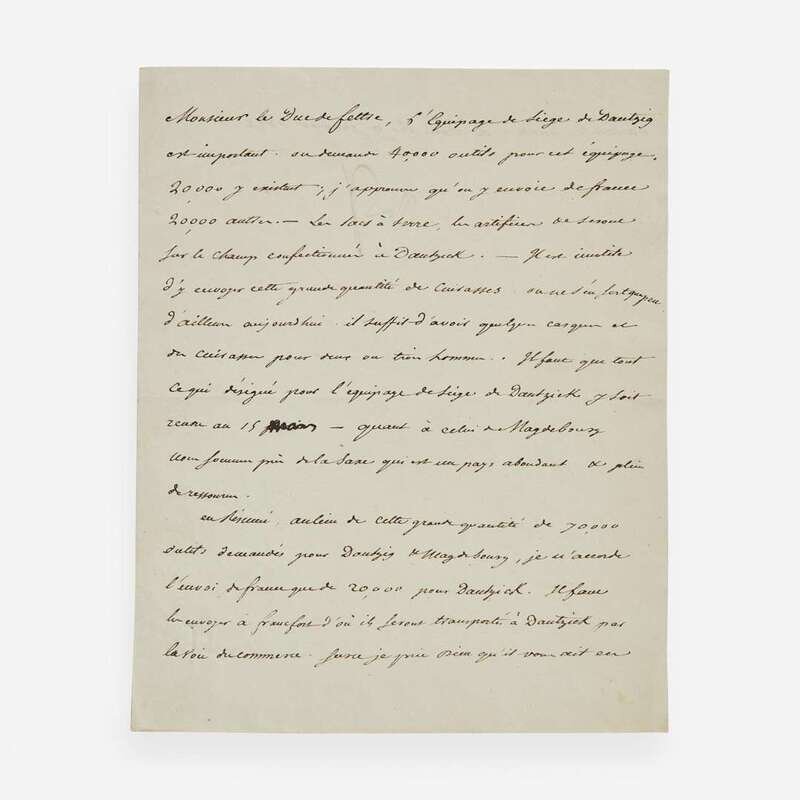 Monsieur le Duc de feltre, l'Equipage de Siège de Dantzig
est important. on demande 40,000 outils pour cet équipage.
20,000 y existent; j'approuve qu'on y envoie de france
20,000 autres. — Les sacs à terre, les artifices se feront
sur le champ confectionnés à Dantzick. — Il est inutile
d'y envoyer cette grande quantité de Cuirasses. on ne s'en sert que peu
d'ailleurs aujourdhui. il suffit d'avoir quelques casques et
des Cuirasses pour deux ou trois hommes. Il faut que tout
ce qui désigné pour l'équipage de Siége de Dantzick y soit
rendu au 15 mars — quant à celui de Magdebourg
nous sommes près de la Saxe qui est un pays abondant & plein
de ressources.
en Résumé, aulieu de cette grande quantité de 70,000
outils demandés pour Dantzig & Magdebourg, je n'accorde
l'envoi de france que de 20000 pour Dantzick. Il faut
les envoyer à francfort d'où ils seront transportés à Dantzick par
la voie du commerce. Surce je prie Dieu qu'il vous ait en